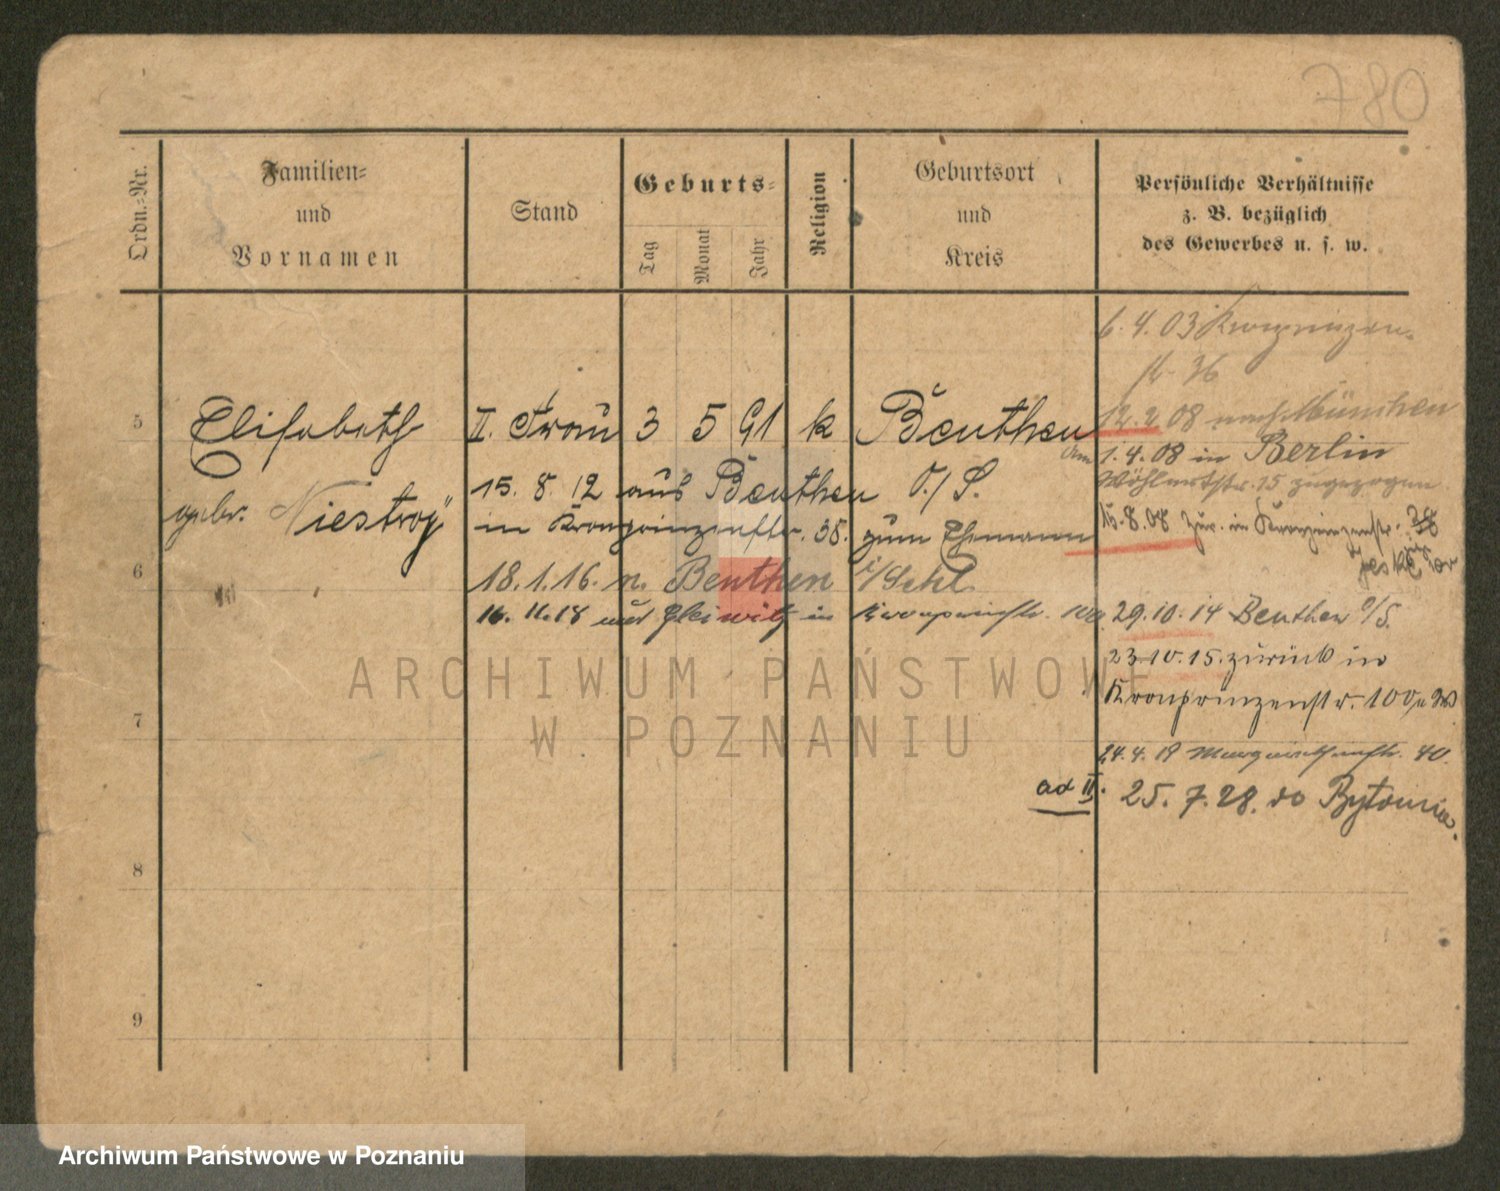 780
Ordn.-Nr.
Familien-
und
Vornamen
Stand
Geburts-
Tag
Monat
Jahr
Religion
Geburtsort
und
Kreis
Persönliche Verhältnisse
z. B. bezüglich
des Gewerbes u. s. w.
6. 4. 03 Kronprinzen-
36
5
Elisabeth
II. Frau
3
5
91
k
Beuthen
12. 2. 08 nach München
am 1. 4. 08 in Berlin
15. 8. 12 aus Beuthen O./S.
Wöhlertstr. 15 zugezogen
gebr. Niestroy
in Kronprinzenstr. 38. zum Ehemann
15. 8. 08 Zür. in Kronprinzenstr. 38
6
18. 1. 16. n. Beuthen
16. 11. 18 aus Gleiwitz in Kronprinzstr. 100
29. 10. 14 Beuthen O/S.
23 10. 15. zurück in
Kronprinzenstr. 100
7
24. 4. 19 Margarethenstr. 40.
ad II. 25. 7. 28. do Bytomia.
8
9
ARCHIWUM PAŃSTWOWE
W POZNANIU
Archiwum Państwowe w Poznaniu